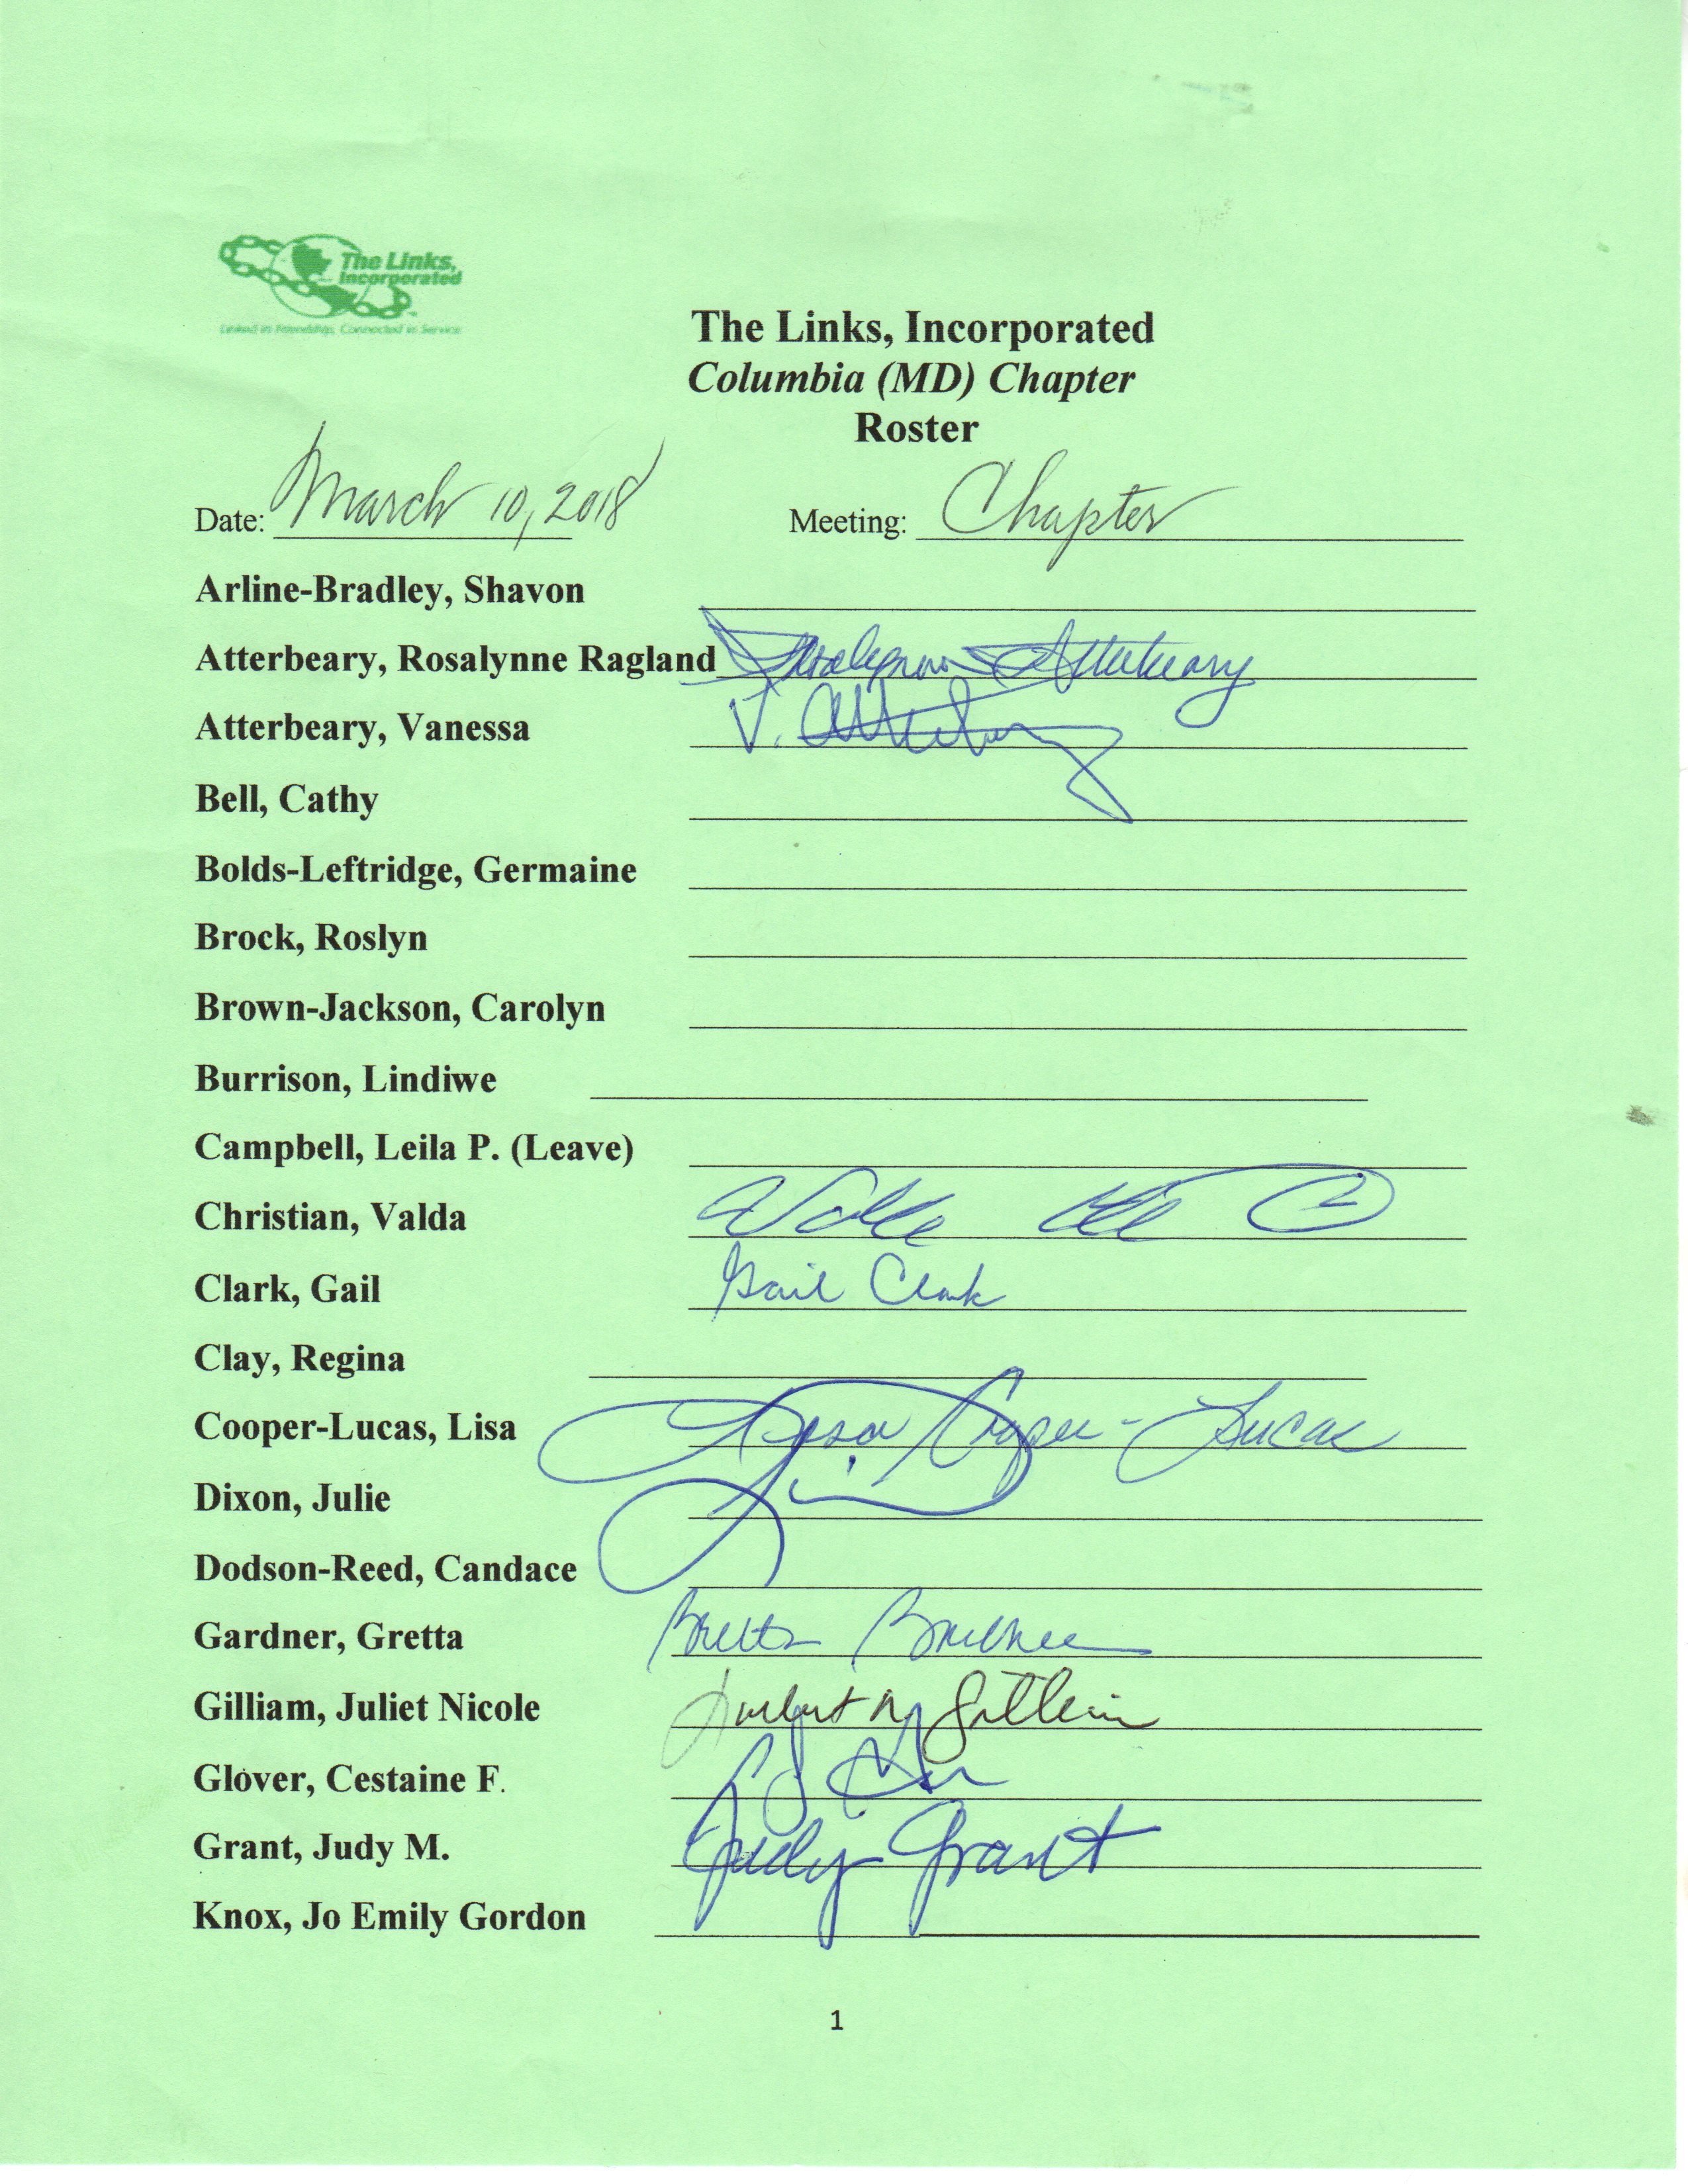 The Links,
Incorporated
Linked in Friendship, Connected in Service
The Links, Incorporated
Columbia (MD) Chapter
Roster
Date: March 10, 2018 Meeting: Chapter
Arline-Bradley, Shavon
Atterbeary, Rosalynne Ragland Rosalynne Atterbeary
Atterbeary, Vanessa V. Atterbeary
Bell, Cathy
Bolds-Leftridge, Germaine
Brock, Roslyn
Brown-Jackson, Carolyn
Burrison, Lindiwe
Campbell, Leila P. (Leave)
Christian, Valda
Clark, Gail Gail Clark
Clay, Regina
Cooper-Lucas, Lisa Lisa Cooper-Lucas
Dixon, Julie
Dodson-Reed, Candace
Gardner, Gretta Gretta Gardner
Gilliam, Juliet Nicole Juliet N. Gilliam
Glover, Cestaine F.
Grant, Judy M. Judy Grant
Knox, Jo Emily Gordon
1